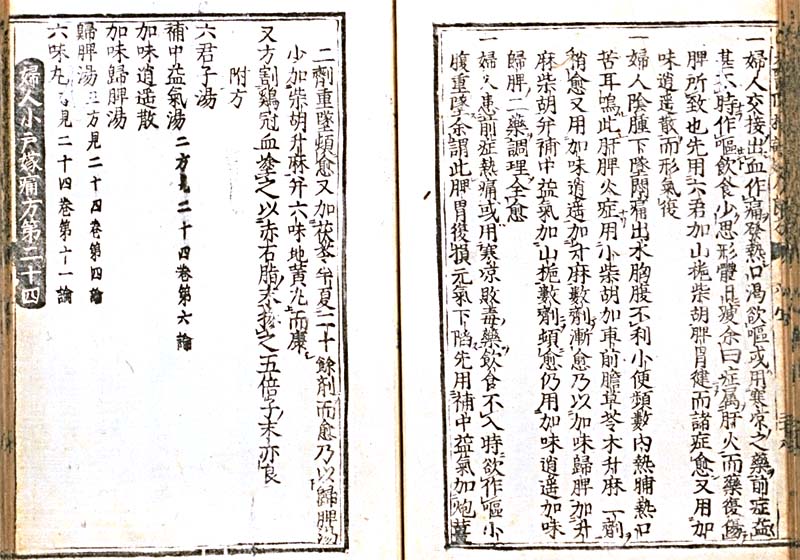 一婦人交接出血作痛發熱口渴欲嘔或用寒凉之藥前症益
甚不時作嘔飲食少思形體日瘦余曰症屬肝火而藥復傷
脾所致也先用六君加山梔柴胡脾胃健而諸症愈又用加
味逍遥散而形氣復
一婦人陰腫下墜悶痛出水胸腹不利小便頻數內熱晡熱口
苦耳鳴此肝脾火症用小柴胡加車前膽草苓木升麻一劑
稍愈又用加味逍遥加升麻數劑漸愈乃以加味歸脾加升
麻柴胡并補中益氣加山梔數劑頓愈仍用加味逍遥加味
歸脾二藥調理全愈
一婦人患前症熱痛或用寒凉敗毒藥飲食不入時欲作嘔小
腹重墜余謂此脾胃復損元氣下陷先用補中益氣加炮薑
二劑重墜頓愈又加茯苓半夏二十餘劑而愈乃以歸脾湯
少加柴胡升麻并六味地黄丸而康
又方割鷄冠血塗之以赤石脂末摻之五倍子末亦良
附方
六君子湯
補中益氣湯二方見二十四卷第六論
加味逍遥散
加味歸脾湯
歸脾湯三方見二十四卷第四論
六味丸方見二十四卷第十一論
婦人小戸嫁痛方第二十四